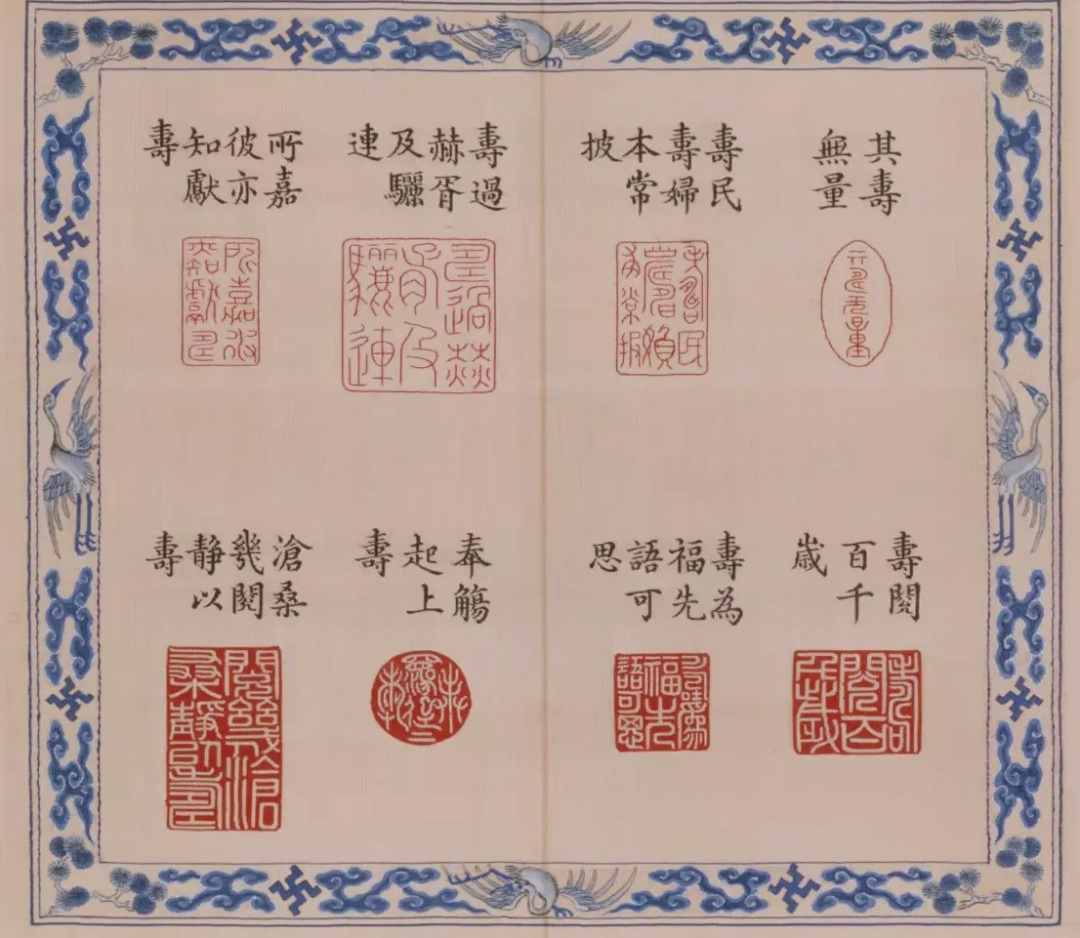 其壽
無量
壽民
壽婦
本常
披
壽過
赫胥
及驪
連
所嘉
彼亦
知獻
壽
壽閱
百千
歲
壽為
福先
語可
思
奉觴
起上
壽
滄桑
幾閱
静以
壽